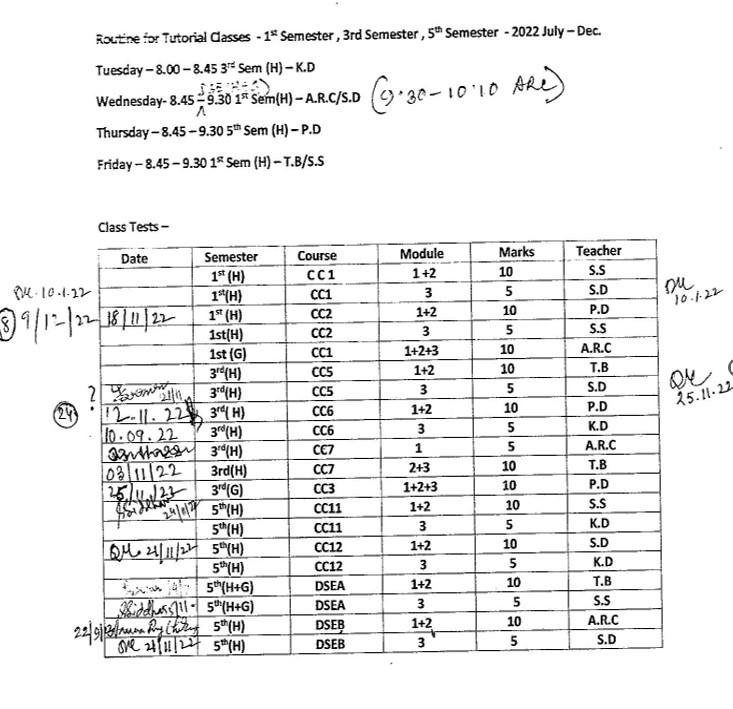 Routine for Tutorial Classes - 1st Semester , 3rd Semester , 5th Semester - 2022 July – Dec.
Tuesday – 8.00 – 8.45 3rd Sem (H) – K.D
Wednesday- 8.45 – 9.30 1st Sem(H) – A.R.C/S.D (9.30 – 10.10 ARC)
Thursday – 8.45 – 9.30 5th Sem (H) – P.D
Friday – 8.45 – 9.30 1st Sem (H) – T.B/S.S
Class Tests –
Date Semester Course Module Marks Teacher
1st (H) CC 1 1+2 10 S.S
10.1.22 1st(H) CC1 3 5 S.D 10.1.22
9/12/22 18/11/22 1st (H) CC2 1+2 10 P.D
1st(H) CC2 3 5 S.S
1st (G) CC1 1+2+3 10 A.R.C
3rd(H) CC5 1+2 10 T.B
? 3rd(H) CC5 3 5 S.D 25.11.22
24 12.11.22 3rd( H) CC6 1+2 10 P.D
10.09.22 3rd(H) CC6 3 5 K.D
3rd(H) CC7 1 5 A.R.C
03/11/22 3rd(H) CC7 2+3 10 T.B
25/11/22 3rd(G) CC3 1+2+3 10 P.D
5th(H) CC11 1+2 10 S.S
5th(H) CC11 3 5 K.D
21/11/22 5th(H) CC12 1+2 10 S.D
5th(H) CC12 3 5 K.D
5th(H+G) DSEA 1+2 10 T.B
5th(H+G) DSEA 3 5 S.S
5th(H) DSEB 1+2 10 A.R.C
21/11/22 5th(H) DSEB 3 5 S.D